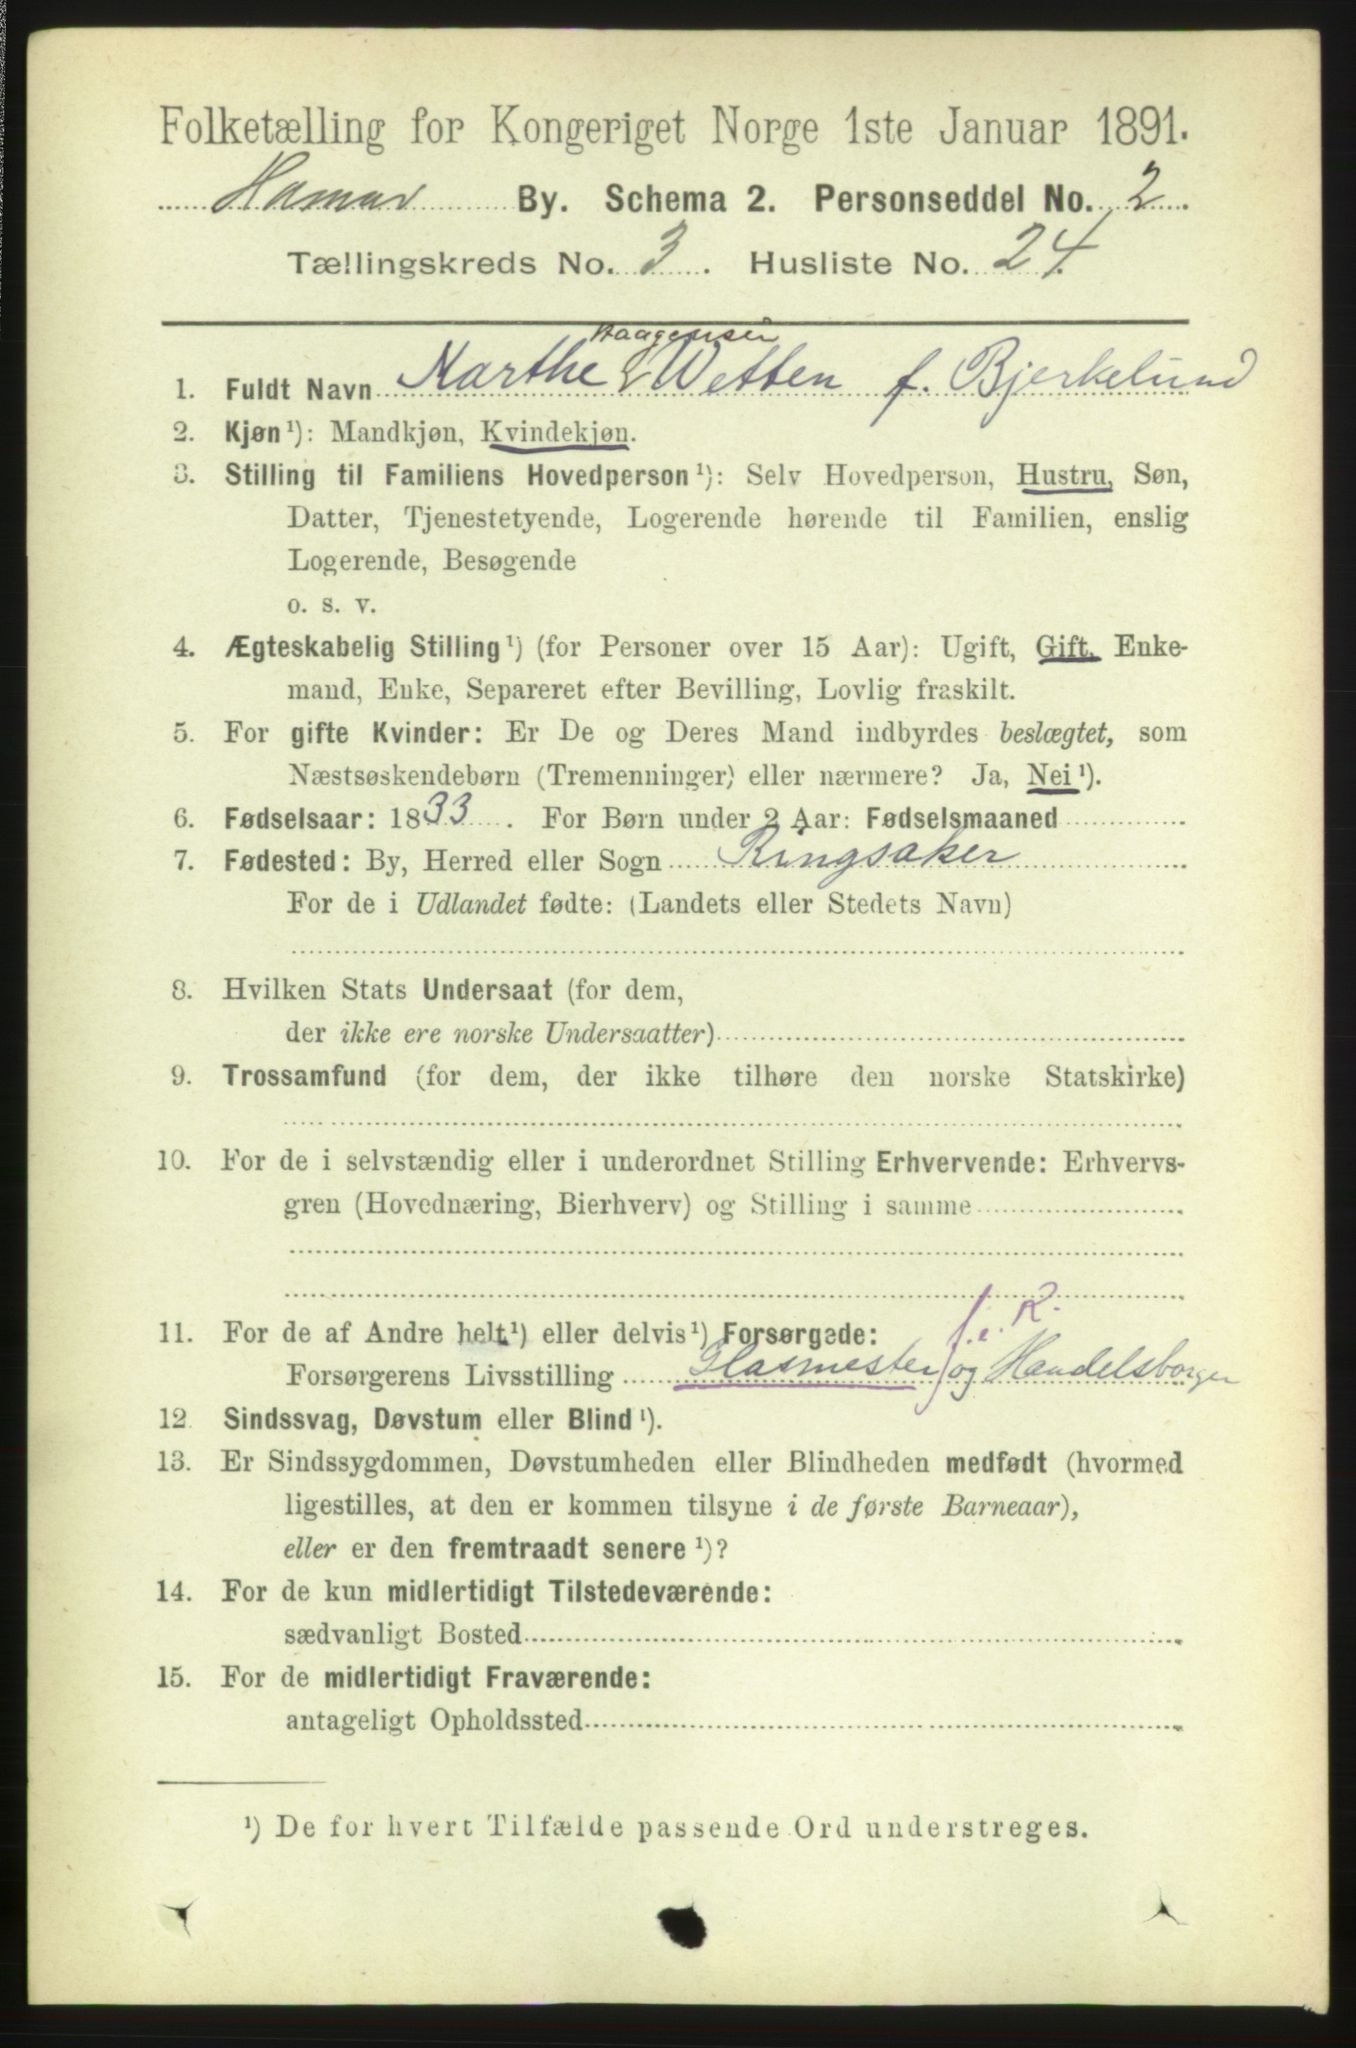 Folketælling for Kongeriget Norge 1ste Januar 1891.
Hamar By. Schema 2. Personseddel No. 2
Tællingskreds No. 3. Husliste No. 24.
Haagensen
1. Fuldt Navn Marthe Wetten f. Bjerkelund
2. Kjøn ¹): Mandkjøn, Kvindekjøn.
3. Stilling til Familiens Hovedperson ¹): Selv Hovedperson, Hustru, Søn,
Datter, Tjenestetyende, Logerende hørende til Familien, enslig
Logerende, Besøgende
o. s. v.
4. Ægteskabelig Stilling ¹) (for Personer over 15 Aar): Ugift, Gift, Enke-
mand, Enke, Separeret efter Bevilling, Lovlig fraskilt.
5. For gifte Kvinder: Er De og Deres Mand indbyrdes beslægtet, som
Næstsøskendebørn (Tremenninger) eller nærmere? Ja, Nei ¹).
6. Fødselsaar: 1833. For Børn under 2 Aar: Fødselsmaaned
7. Fødested: By, Herred eller Sogn Ringsaker
For de i Udlandet fødte: (Landets eller Stedets Navn)
8. Hvilken Stats Undersaat (for dem,
der ikke ere norske Undersaatter)
9. Trossamfund (for dem, der ikke tilhøre den norske Statskirke)
10. For de i selvstændig eller i underordnet Stilling Erhvervende: Erhvervs-
gren (Hovednæring, Bierhverv) og Stilling i samme
f. e. R.
11. For de af Andre helt ¹) eller delvis ¹) Forsørgede:
Forsørgerens Livsstilling Glasmester og Handelsborger
12. Sindssvag, Døvstum eller Blind ¹).
13. Er Sindssygdommen, Døvstumheden eller Blindheden medfødt (hvormed
ligestilles, at den er kommen tilsyne i de første Barneaar),
eller er den fremtraadt senere ¹)?
14. For de kun midlertidigt Tilstedeværende:
sædvanligt Bosted
15. For de midlertidigt Fraværende:
antageligt Opholdssted
¹) De for hvert Tilfælde passende Ord understreges.